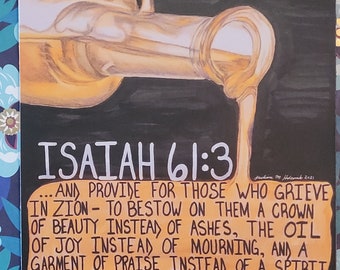 ISAIAH 61:3
2021
...AND PROVIDE FOR THOSE WHO GRIEVE
IN ZION - TO BESTOW ON THEM A CROWN
OF BEAUTY INSTEAD OF ASHES, THE OIL
OF JOY INSTEAD OF MOURNING, AND A
GARMENT OF PRAISE INSTEAD OF A SPIRIT